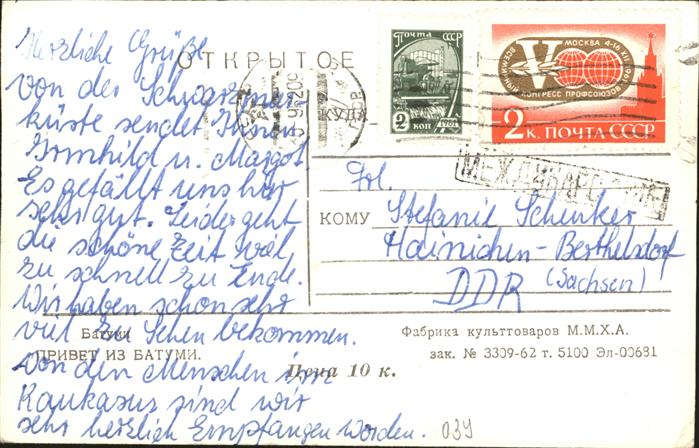 ОТКРЫТОЕ
Herzliche Grüße
von der Schwarzmeer-
küste sendet Ihnen
Irmhild u. Margot
Es gefällt uns hier
sehr gut. Leider geht
die schöne Zeit viel
zu schnell zu Ende.
Wir haben schon sehr
viel zu sehen bekommen.
Von den Menschen im
Kaukasus sind wir
sehr herzlich Empfangen worden.
039
Батуми
ПРИВЕТ ИЗ БАТУМИ.
Цена 10 к.
Почта СССР
2 коп
1961
V
МОСКВА 4-16 XII 1961
ВСЕМИРНЫЙ КОНГРЕСС ПРОФСОЮЗОВ
2 к. ПОЧТА СССР
КУДА
МЕЖДУНАРОДНОЕ
КОМУ
Frl.
Stefanie Schenker
Hainichen-Berthelsdorf
DDR (Sachsen)
Фабрика культтоваров М.М.Х.А.
зак. № 3309-62 т. 5100 Эл-00681